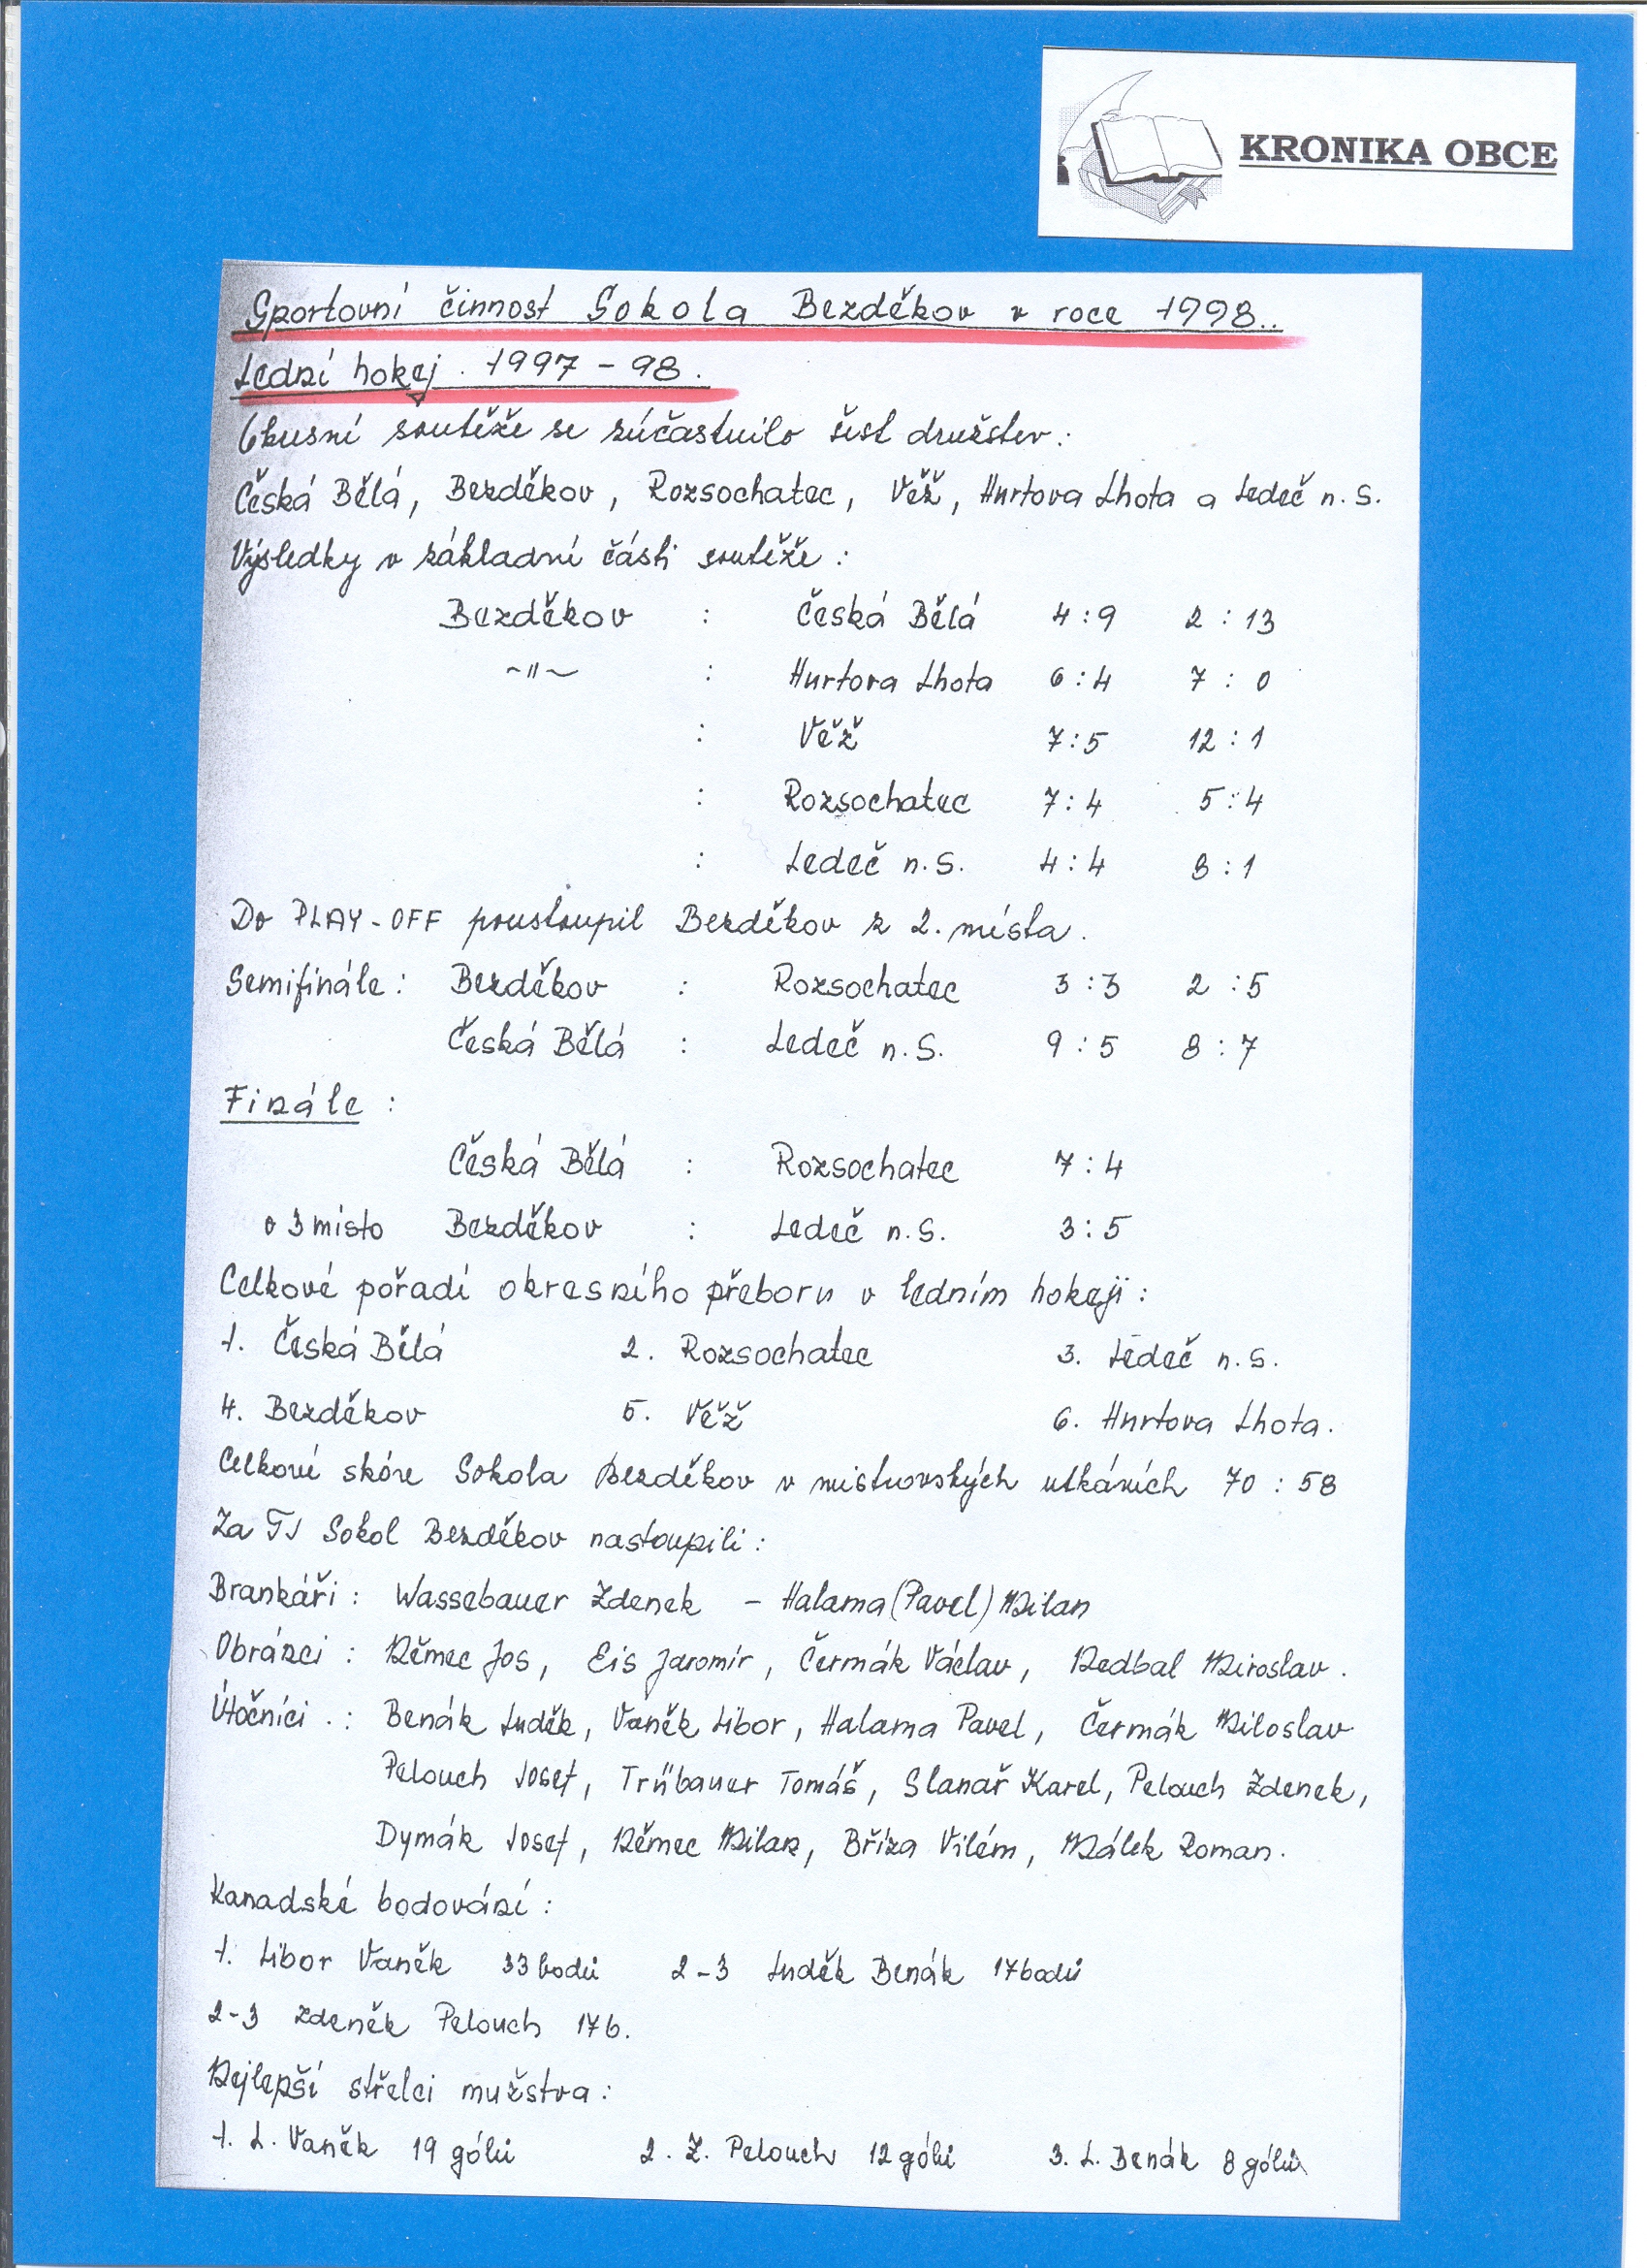 KRONIKA OBCE
Sportovní činnost Sokola Bezděkov v roce 1998..
Lední hokej. 1997 - 98.
Okresní soutěže se zúčastnilo šest družstev:
Česká Bělá, Bezděkov, Rozsochatec, Věž, Hurtova Lhota a Ledeč n. S.
Výsledky v základní části soutěže:
Bezděkov : Česká Bělá 4:9 2:13
~"~ : Hurtova Lhota 6:4 7:0
: Věž 7:5 12:1
: Rozsochatec 7:4 5:4
: Ledeč n.S. 4:4 8:1
Do PLAY-OFF postoupil Bezděkov z 2. místa.
Semifinále: Bezděkov : Rozsochatec 3:3 2:5
Česká Bělá : Ledeč n.S. 9:5 8:7
Finále:
Česká Bělá : Rozsochatec 7:4
o 3 místo Bezděkov : Ledeč n.S. 3:5
Celkové pořadí okresního přeboru v ledním hokeji:
1. Česká Bělá 2. Rozsochatec 3. Ledeč n.S.
4. Bezděkov 5. Věž 6. Hurtova Lhota.
Celkové skóre Sokola Bezděkov v mistrovských utkáních 70:58
Za TJ Sokol Bezděkov nastoupili:
Brankáři: Wassebauer Zdenek - Halama (Pavel) Milan
Obránci: Němec Jos, Eis Jaromír, Čermák Václav, Nedbal Miroslav.
Útočníci.: Benák Luděk, Vaněk Libor, Halama Pavel, Čermák Miloslav
Pelouch Josef, Trübauer Tomáš, Slanař Karel, Pelouch Zdenek,
Dymák Josef, Němec Milan, Bříza Vilém, Málek Roman.
Kanadské bodování:
1. Libor Vaněk 33 bodů 2-3 Luděk Benák 17 bodů
2-3 Zdeněk Pelouch 17 b.
Nejlepší střelci mužstva:
1. L. Vaněk 19 gólů 2. Z. Pelouch 12 gólů 3. L. Benák 8 gólů